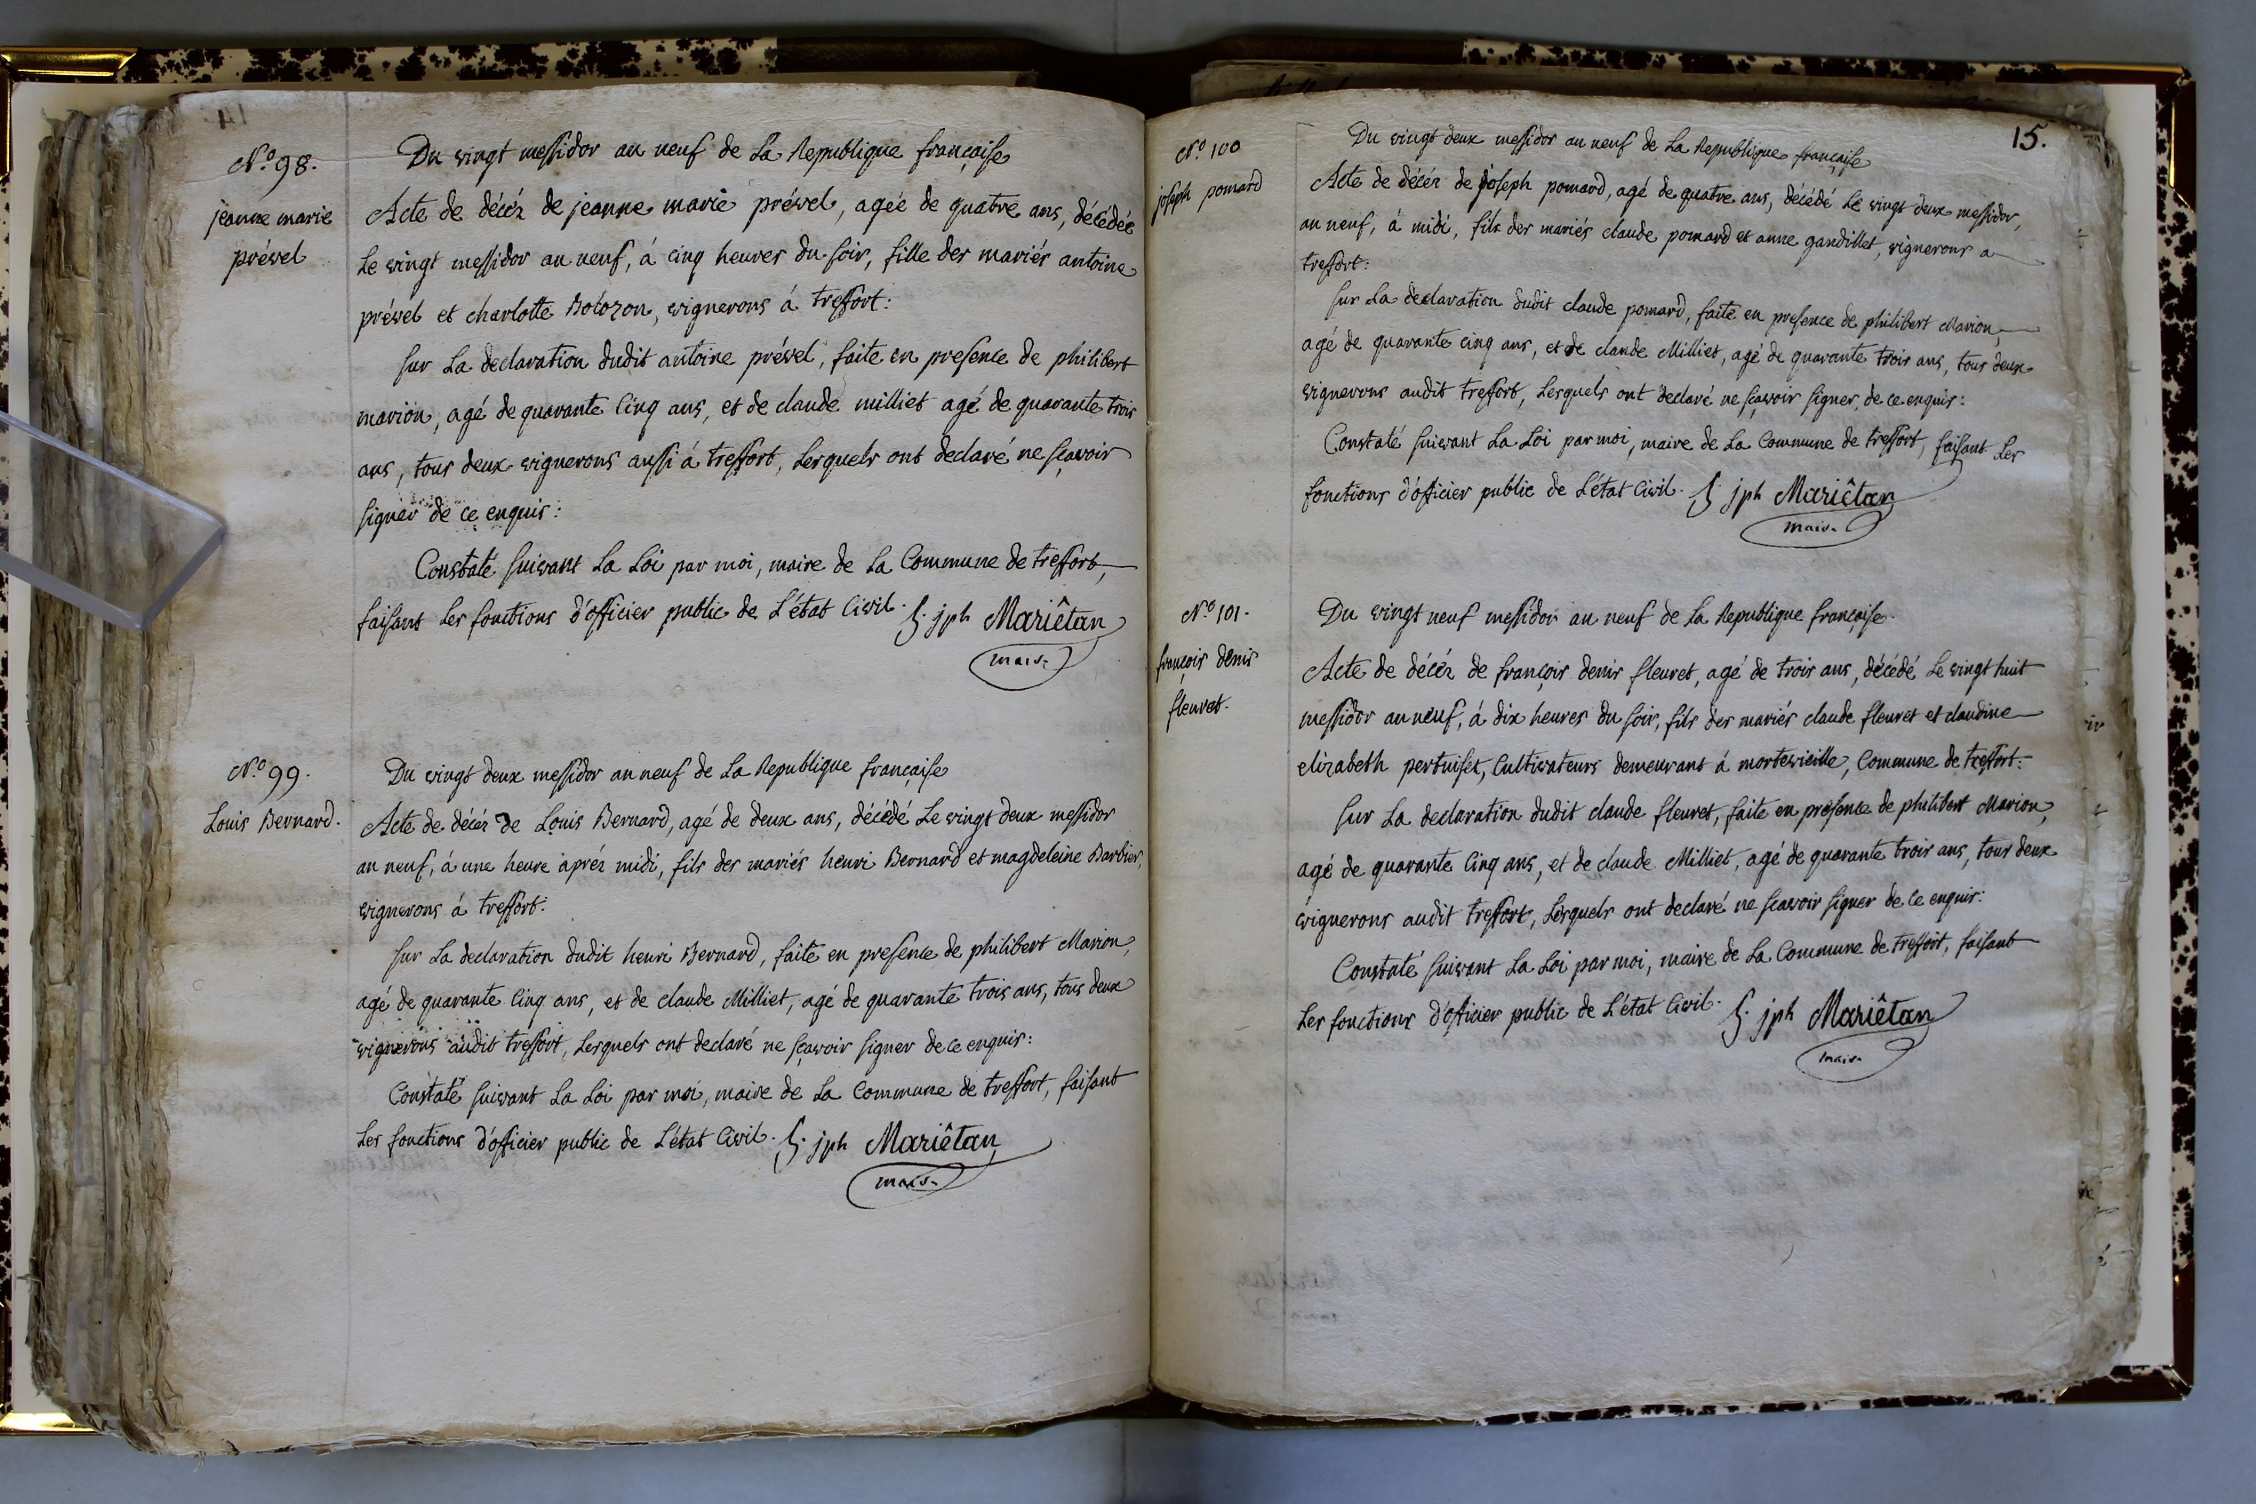 N.º 98.
jeanne marie
prével
Du vingt messidor an neuf de La Republique française
Acte de décéz de jeanne marie prével, agée de quatre ans, décédée
Le vingt messidor an neuf, á cinq heures du soir, fille des mariés antoine
prével et charlotte Bolozon, vignerons á treffort:
sur La declaration dudit antoine prévél, faite en presence de philibert
marion, agé de quarante Cinq ans, et de claude milliet agé de quarante trois
ans, tous deux vignerons aussi á treffort, Lesquels ont declaré ne sçavoir
signer de ce enquis:
Constaté suivant La Loi par moi, maire de La Commune de treffort,
faisant Les fonctions d'officier public de L'état Civil. jph Mariêtan
maire
N.º 99.
Louis Bernard.
Du vingt deux messidor an neuf de La Republique française
Acte de décéz de Louis Bernard, agé de deux ans, décédé Le vingt deux messidor
an neuf, á une heure apréz midi, fils des mariés henri Bernard et magdeleine Barbier,
vignerons á treffort:
sur La declaration dudit henri Bernard, faite en presence de philibert Marion,
agé de quarante Cinq ans, et de claude Milliet, agé de quarante trois ans, tous deux
vignerons audit treffort, Lesquels ont declaré ne sçavoir signer de ce enquis:
Constaté suivant La Loi par moi, maire de La Commune de treffort, faisant
Les fonctions d'officier public de L'état Civil. jph Mariêtan
maire
15.
N.º 100
joseph pomard
Du vingt deux messidor an neuf de La Republique française
Acte de décéz de joseph pomard, agé de quatre ans, décédé Le vingt deux messidor,
an neuf, á midi, fils des mariés claude pomard et anne gandillet, vignerons a
treffort:
sur La declaration dudit claude pomard, faite en presence de philibert Marion,
agé de quarante cinq ans, et de claude Milliet, agé de quarante trois ans, tous deux
vignerons audit treffort, Lesquels ont declaré ne sçavoir signer, de ce enquis:
Constaté suivant La Loi par moi, maire de La Commune de treffort, faisant Les
fonctions d'officier public de L'état Civil. jph Mariêtan
maire
N.º 101.
françois denis
fleuret.
Du vingt neuf messidor an neuf de La Republique française.
Acte de décéz de françois denis fleuret, agé de trois ans, décédé Le vingt huit
messidor an neuf, á dix heures du soir, fils des mariés claude fleuret et claudine
elizabeth pertuiset, Cultivateurs demeurant á mortevieille, Commune de treffort:
sur La declaration dudit claude fleuret, faite en présence de philibert Marion,
agé de quarante Cinq ans, et de claude Milliet, agé de quarante trois ans, tous deux
vignerons audit treffort, Lesquels ont declaré ne sçavoir signer de ce enquis:
Constaté suivant La Loi par moi, maire de La Commune de treffort, faisant
Les fonctions d'officier public de L'état Civil. jph Mariêtan
maire